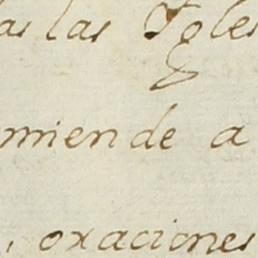 las las Igles
miende a
, oraciones